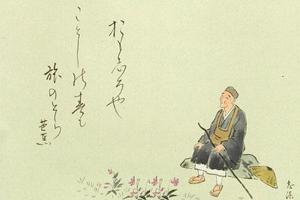 おもしろや
ことしの春も
旅のそら
芭蕉